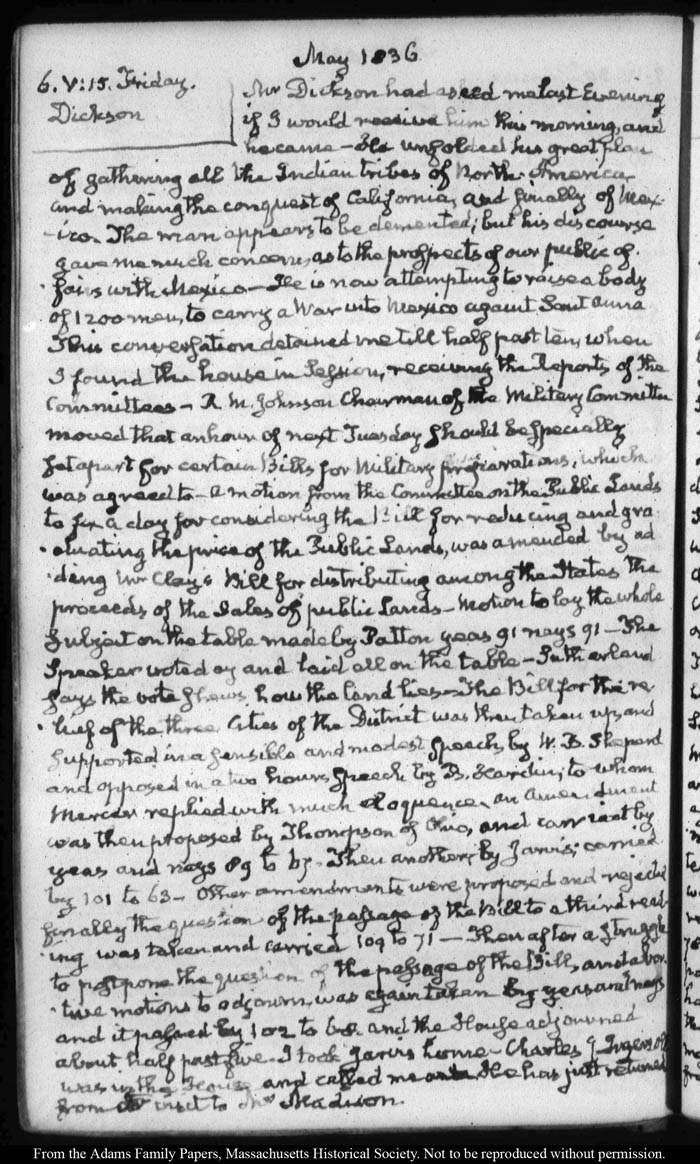 May 1836
6. V:15. Friday.
Dickson
Mr Dickson had asked me last Evening
if I would receive him this morning, and
he came — He unfolded his great plan
of gathering all the Indian tribes of North America,
and making the conquest of California, and finally of Mex-
-ico. The man appears to be demented; but his discourse
gave me much concern, as to the prospects of our public af-
-fairs with Mexico — He is now attempting to raise a body
of 1200 men, to carry a War into Mexico against Sant Anna
This conversation detained me till half past ten, when
I found the house in Session, receiving the Reports of the
Committees — R. M. Johnson Chairman of the Military Committee
moved that an hour of next Tuesday should be specially
set apart for certain Bills for Military preparations, which
was agreed to — A motion from the Committee on the Public Lands
to fix a day for considering the Bill for reducing and gra-
-duating the price of the Public Lands, was amended by ad
-ding Mr Clay's Bill for distributing among the States the
proceeds of the Sales of public Lands — Motion to lay the whole
subject on the table made by Patton yeas 91 nays 91 — The
Speaker voted ay and laid all on the table — Sutherland
says the vote shews how the land lies — The Bill for the re-
-lief of the three Cities of the District was then taken up, and
supported in a sensible and modest speech by W. B. Shepard
and opposed in a two hours speech by B. Hardin, to whom
Mercer replied with much eloquence. an amendment
was then proposed by Thompson of Ohio, and carried by
yeas and nays 89 to Then another, by Jarvis; carried
by 101 to 63 — Other amendments were proposed and rejected
finally the question of the passage of the Bill to a third read-
-ing was taken and carried 109 to 71 — Then after a struggle
to postpone the question of the passage of the Bill, and abor-
-tive motions to adjourn, was again taken by yeas and nays
and it passed by 102 to and the House adjourned
about half past five. I took Jarvis home — Charles J. Ingersoll
was in the House and called me He has just returned
from visit to Mr Madison.
From the Adams Family Papers, Massachusetts Historical Society. Not to be reproduced without permission.